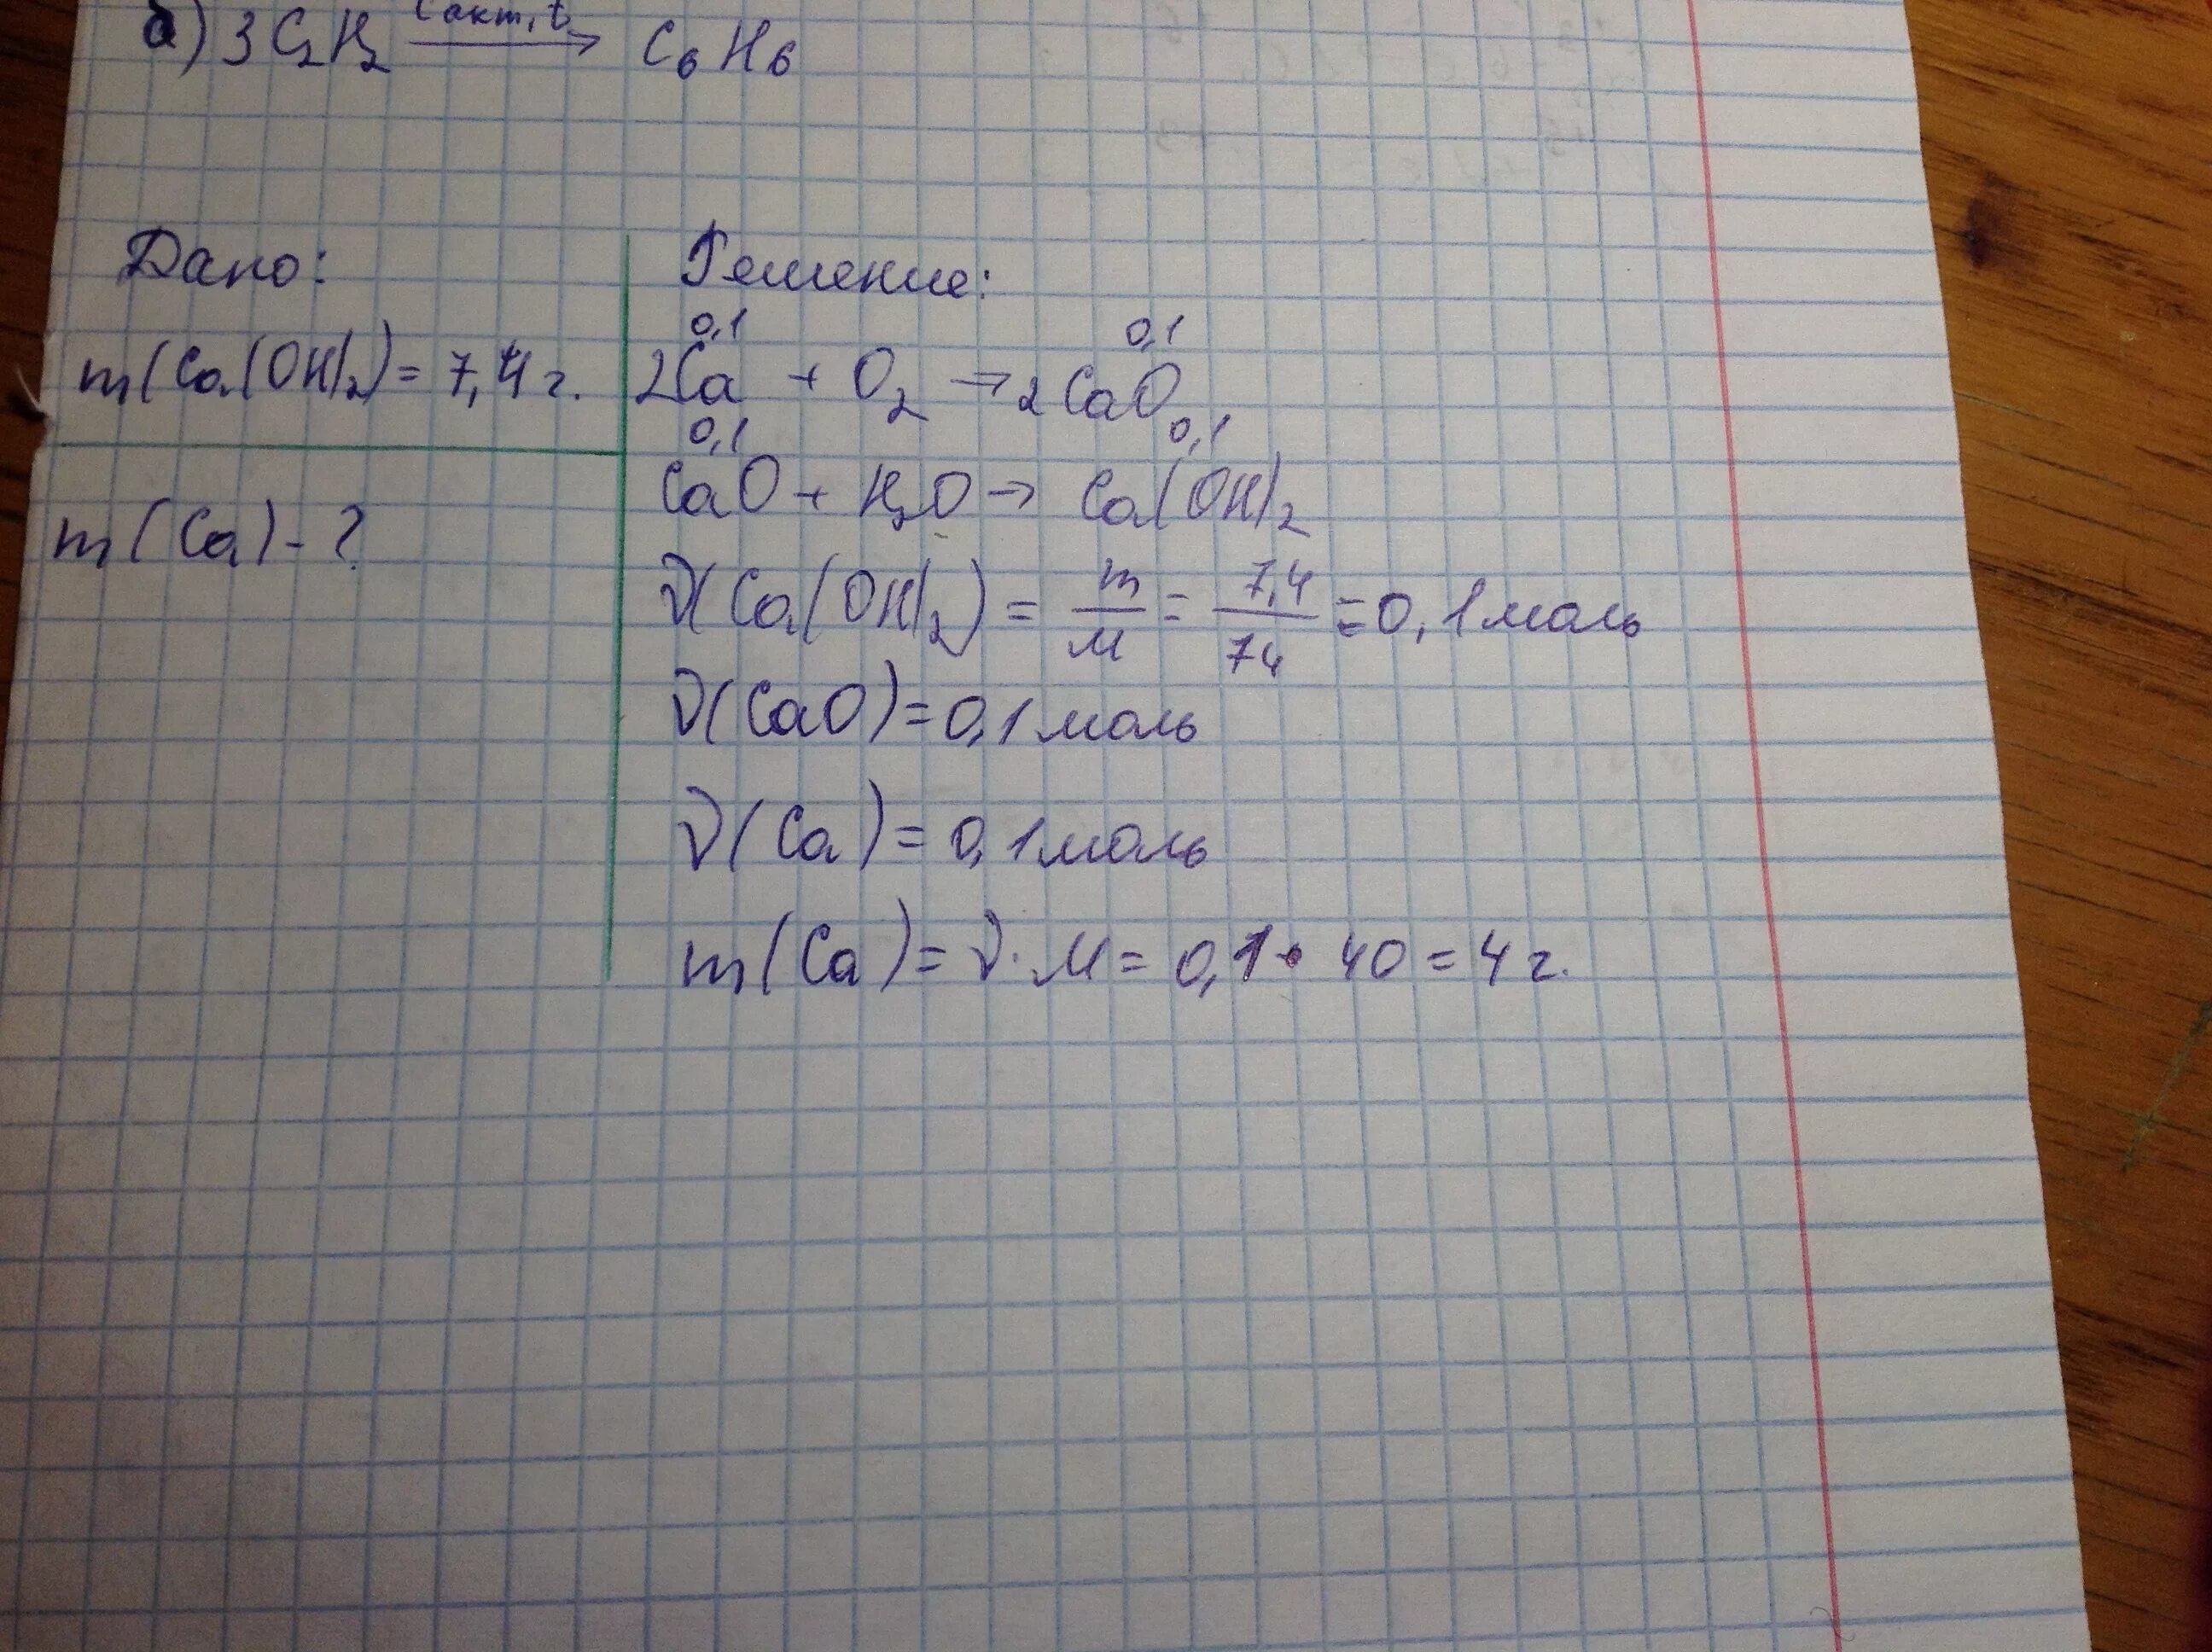 б) 3C₂H₂ —Cакт, t→ C₆H₆
Дано:
m(Ca(OH)₂) = 7,4 г.
m(Ca) - ?
Решение:
0,1 0,1
2Ca + O₂ → 2CaO
0,1 0,1
CaO + H₂O → Ca(OH)₂
ν(Ca(OH)₂) = m/M = 7,4/74 = 0,1 моль
ν(CaO) = 0,1 моль
ν(Ca) = 0,1 моль
m(Ca) = ν · M = 0,1 · 40 = 4 г.